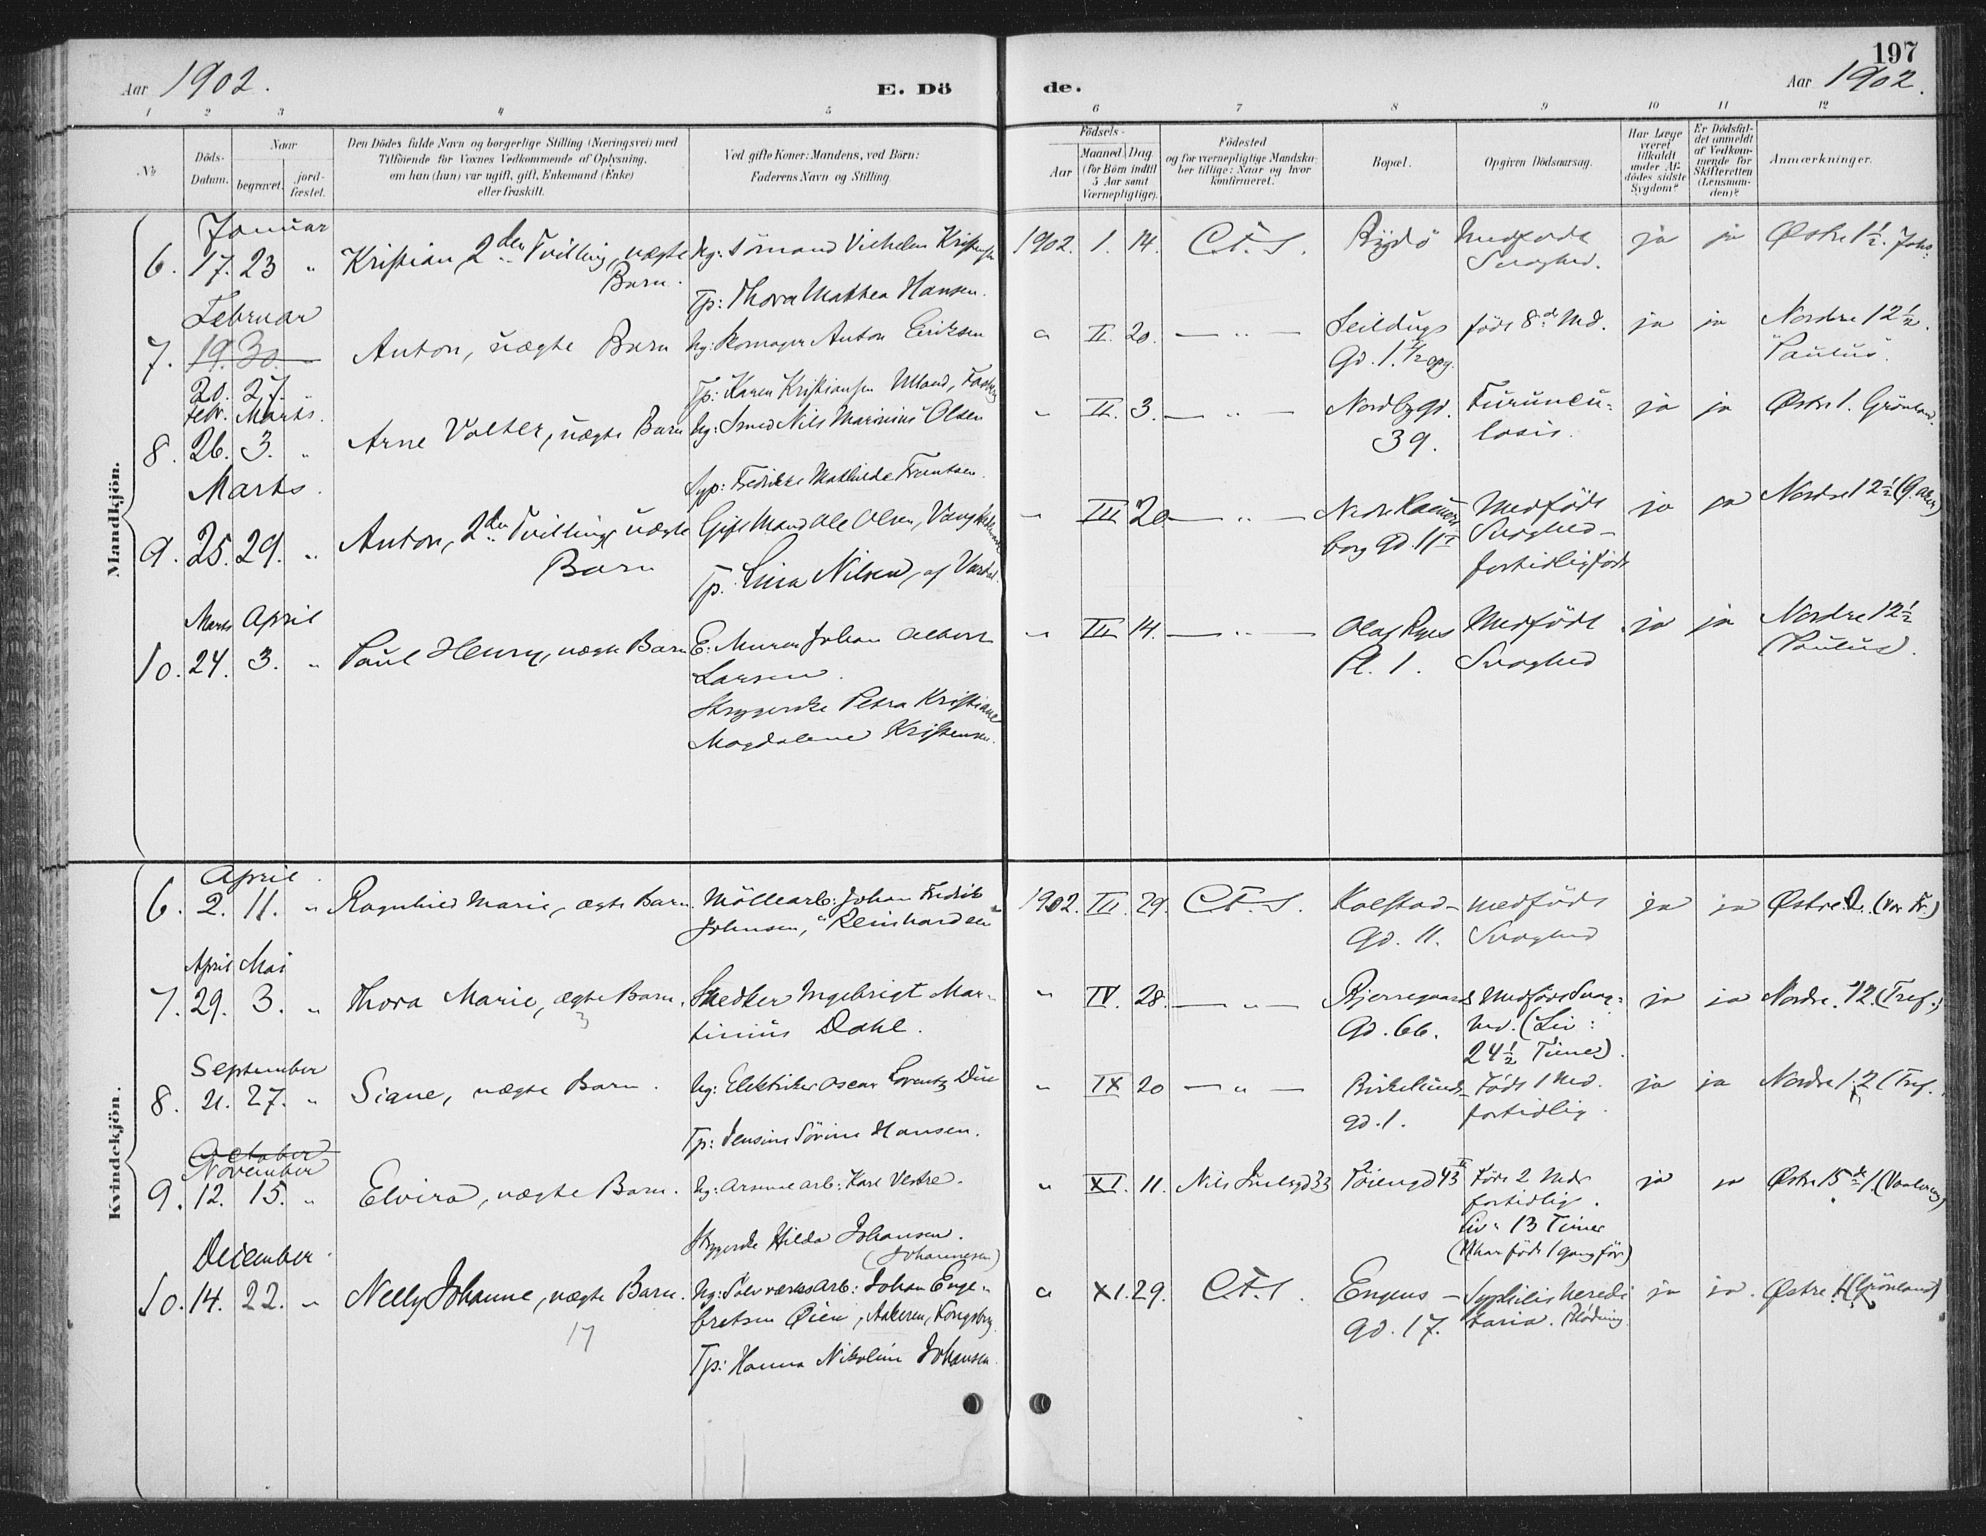 197
Aar 1902.
E. Dö de.
Aar 1902.
1 2 3 4 5 6 7 8 9 10 11 12
No
Döds-Datum.
Naar
begravet.
jord-fæstet.
Den Dödes fulde Navn og borgerlige Stilling (Næringsvei) med
Tilföiende for Voxnes Vedkommende af Oplysning,
om han (hun) var ugift, gift, Enkemand (Enke)
eller fraskilt.
Ved gifte Koner: Mandens, ved Börn:
Faderens Navn og Stilling.
Födsels-
Aar
Maaned. Dag.
(for Börn indtil
5 Aar samt
Værnepligtige).
Födested
og for værnepligtige Mandska-
ber tillige: Naar og hvor
konfirmeret.
Bopæl.
Opgiven Dödsaarsag.
Har Læge
været
tilkaldt
under Af-
dödes sidste
Sygdom?
Er Dödsfal-
det anmeldt
af Vedkom-
mende for
Skifteretten
(Lensman-
den)?
Anmærkninger.
Mandkjön.
Januar
6. 17. 23 " Kristian, 2den Tvilling, uægte Barn. Ug: Sömand Vilhelm
Tp: Thora Mathea Hansen.
1902. 1. 14. C.F.S. Bygdö Medfödt Svaghed. ja ja Østre 1½. Johs:
Februar
7. 19. 30.
20. 27.
Anton, uægte Barn Ug: Skomager Anton Eriksen
Tp: Karen Kristiansen
" II. 20. — " — Seildugs Gd. 1. født 8de Md. ja ja Nordre 12½. Paulus.
Febr. Marts.
8. 26. 3. " Arne Volter, uægte Barn Ug: Smed Nils Marinius Olsen
Syp: Fredrikke Mathilde Frantsen.
" II. 3. — " — Nordbygd. 39. Furuncu-losis. ja ja Østre 1. Grönland.
Marts.
9. 25. 29. " Anton, 2den Tvilling, uægte Barn Gift Mand Ole Olsen,
Tp. Lina Nilsen, af
" III 20 — " — Nedre borg Gd. 11 Medfödt Svaghed - fortidlig född ja ja Nordre 12½
Marts April
10. 24. 3. " Paul Henry, uægte Barn E. Murer Johan Albert
Larsen.
Strygerske Petra Kristiane
Magdalene Kristensen.
" III 14. — " — Olaf Ryes Pl. 1. Medfödt Svaghed ja ja Nordre 12½ (Paulus).
Kvindekjön.
April.
6. 2. 11. " Ragnhild Marie, ægte Barn. Möllearb: Johan Fredrik
Johnsen, "Reinhardsen"
1902. III. 29. C.F.S. Kolstad- gd. 11. medfödt Svaghed ja ja Østre (Vor Fr.)
April Mai
7. 29. 3. " Thora Marie, ægte Barn. Snedker Ingebrigt Mar-
tinius Dahl.
3
" IV. 28. — " — Bjerregaards Gd. 66. Medfödt Svag-hed. (Liv: 24½ Timer). ja ja Nordre. 12. (Tref.)
September
8. 21. 27. " Siane, uægte Barn. Ug: Elektriker Oscar Lorentz
Tp: Jensine Sörine Hansen.
" IX 20 — " — Birkelunds- gd. 1. Födt 1 Md. fortidlig. ja ja Nordre 12 (Tref.
October
November
9. 12. 15. " Elvira, uægte Barn. Ug: Arsenalarb: Karl Vestre.
Strygerske Hilda Johansen.
(Johannesen)
" XI. 11. Nils Juelsgd 33 Töiengd 43 Födt 2 Mdr fortidlig. Liv: 13 Timer (Uhar födt 1 gang för) ja ja Østre 15de/1. (Vaalereng)
December.
10. 14. 22. " Nelly Johanne, uægte Barn. Ug: Sölvværksarb: Johan Enge-
bretsen Øien, Kongsberg
Tp: Hanna Nikoline Johansen.
17
" XI. 29. C.F.S. Engens- gd. 17. Syphilis heredi-taria. Blödning. ja ja. Østre 1 (Grönland)